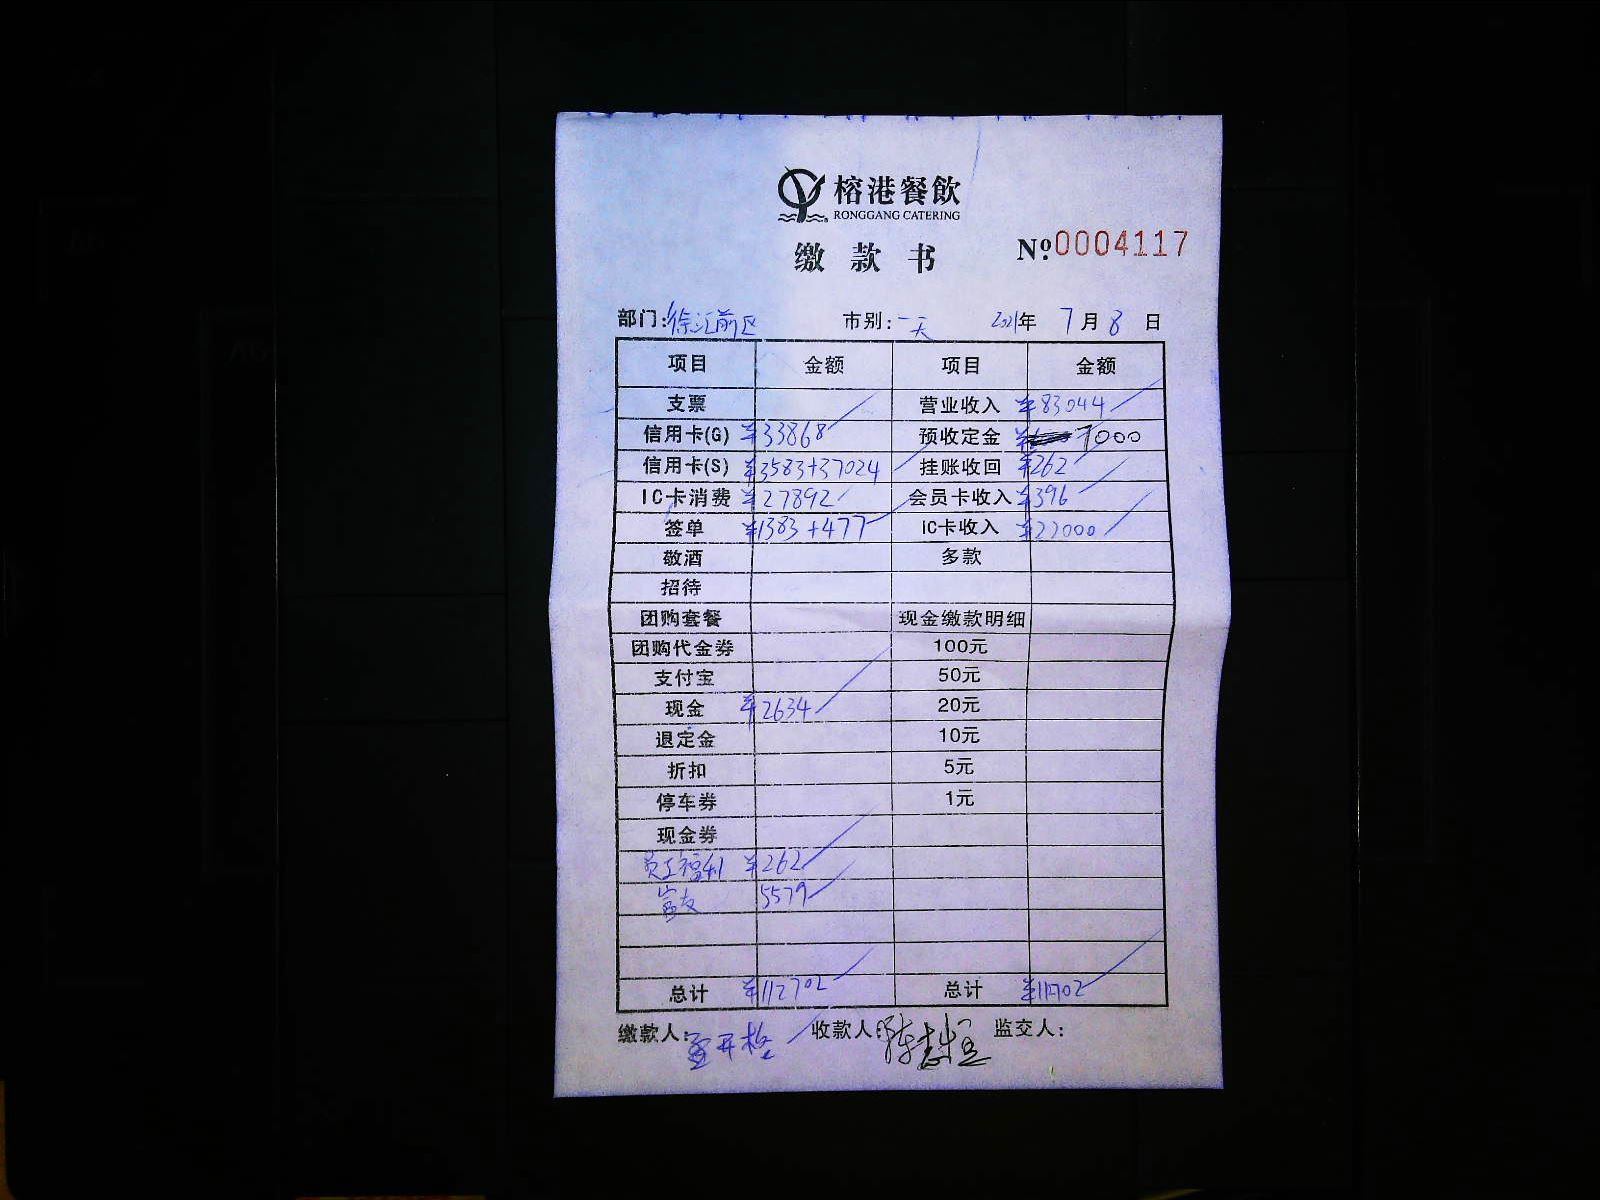 榕港餐飲
RONGGANG CATERING
缴款书 №0004117
部门:徐汇前区 市别:一天 2021年 7月8日
项目 金额 项目 金额
支票 营业收入 ¥83044
信用卡(G) ¥33868 预收定金 7000
信用卡(S) ¥3583+37024 挂账收回 ¥262
IC卡消费 ¥27892 会员卡收入 ¥396
签单 ¥1383+477 IC卡收入 ¥22000
敬酒 多款
招待
团购套餐 现金缴款明细
团购代金券 100元
支付宝 50元
现金 ¥2634 20元
退定金 10元
折扣 5元
停车券 1元
现金券
员工福利 ¥262
富友 5579
总计 ¥112702 总计 ¥112702
缴款人: 收款人: 监交人: